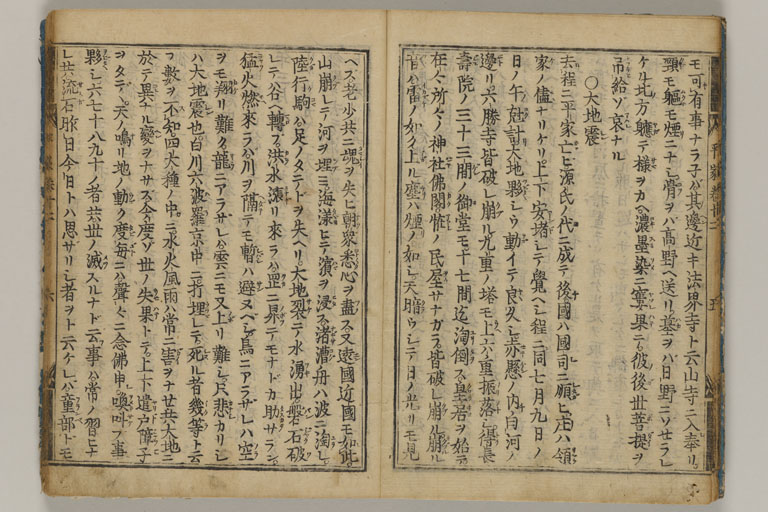 モ可有事ナラ子ハ其邊近キ法界寺ト云山寺ニ入奉リ
頸モ軀モ煙ニナシ骨ヲハ高野ヘ送リ墓ヲハ日野ニソセラレ
ケル北方軈テ樣ヲカヘ濃墨染ニ窶果テ彼後世菩提ヲ
吊給ソ哀ナル
○大地震
去程ニ平家亡ヒ源氏ノ代ニ成テ後國ハ國司ニ願ヒ庄ハ領
家ノ儘ナリケリ上下安堵シテ覺ヘシ程ニ同七月九日ノ
日ノ午尅計大地夥シウ動イテ良久シ赤縣ノ内白河ノ
邊リ六勝寺皆破レ崩ル九重ノ塔モ上六重振落シ得長
壽院ノ三十三間ノ御堂モ十七間迄淘倒ス皇居ヲ始テ
在々所々ノ神社佛閣恠ノ民屋サナカラ皆破レ崩ル崩ル
音ハ雷ノ如ク上ル塵ハ煙ノ如シ天暗ウシテ日ノ光リモ見
ヘス老少共ニ魂ヲ失ヒ朝衆悉心ヲ盡ス又遠國近國モ如此
山崩レテ河ヲ埋ミ海漾ヒテ濱ヲ浸ス渚漕舟ハ波ニ淘レ
陸行駒ハ足ノタテトヲ失ヘリ大地裂テ水湧出盤石破
レテ谷ヘ轉フ洪水漲リ來ラハ罡ニ昇テモナトカ助サラン
猛火燃來ラハ川ヲ隔テモ暫ハ避ヌヘシ鳥ニアラサレハ空
ヲモ翔リ難ク龍ニアラサレハ雲ニモ又上リ難シ只悲カリシ
ハ大地震也白川六波羅京中ニ打埋レテ死ル者幾等ト云
フ數ヲ不知四大種ノ中ニ水火風雨ハ常ニ害ヲナセ共大地ニ
於テ異ナル變ヲナサス今度ソ世ノ失果トテ上下遣戸障子
ヲタテ天ノ鳴リ地ノ動ク度每ニハ聲々ニ念佛申喚叫フ事
夥シ六七十八九十ノ者共世ノ滅スルナト云事ハ常ノ習ヒナ
レ共流石昨日今日トハ思サリシ者ヲト云ケレハ童部トモ